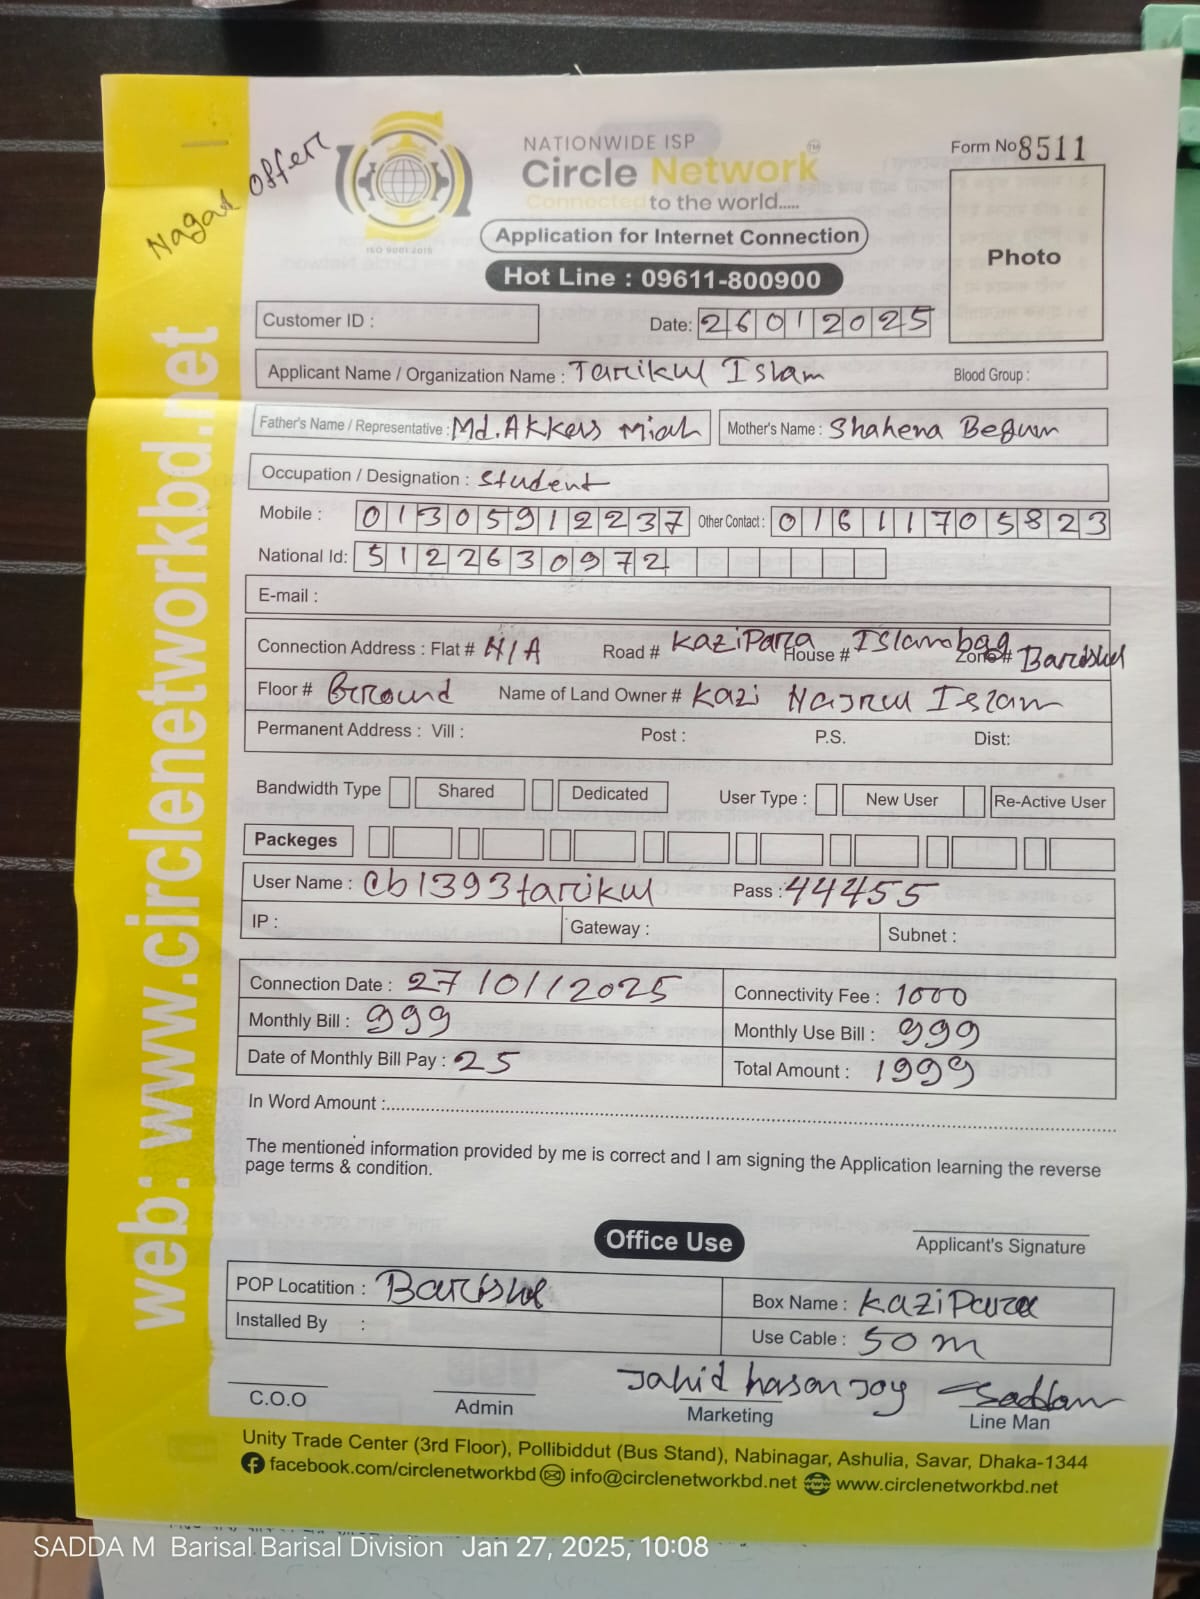 Nagad Offer
NATIONWIDE ISP
Circle Network TM
Connected to the world.....
ISO 9001:2015
Application for Internet Connection
Hot Line : 09611-800900
Form No 8511
Photo
Customer ID :
Date: 26012025
Applicant Name / Organization Name : Tarikul Islam Blood Group :
Father's Name / Representative : Md. Akkas Miah Mother's Name : Shahena Begum
Occupation / Designation : Student
Mobile : 01305912237 Other Contact : 01611705823
National Id: 5122630972
E-mail :
Connection Address : Flat # N/A Road # Kazi Para House # Islambag Zone # Barishal
Floor # Ground Name of Land Owner # Kazi Najrul Islam
Permanent Address : Vill : Post : P.S. Dist:
Bandwidth Type Shared Dedicated User Type : New User Re-Active User
Packeges
User Name : cb1393tarikul Pass : 44455
IP : Gateway : Subnet :
Connection Date : 27/01/2025 Connectivity Fee : 1000
Monthly Bill : 999 Monthly Use Bill : 999
Date of Monthly Bill Pay : 25 Total Amount : 1999
In Word Amount :
The mentioned information provided by me is correct and I am signing the Application learning the reverse
page terms & condition.
Office Use
Applicant's Signature
POP Locatition : Barishal Box Name : Kazi Para
Installed By : Use Cable : 50 m
Jahid hasan Joy Saddam
C.O.O Admin Marketing Line Man
Unity Trade Center (3rd Floor), Pollibiddut (Bus Stand), Nabinagar, Ashulia, Savar, Dhaka-1344
facebook.com/circlenetworkbd info@circlenetworkbd.net www.circlenetworkbd.net
web: www.circlenetworkbd.net
SADDA M Barisal.Barisal Division Jan 27, 2025, 10:08